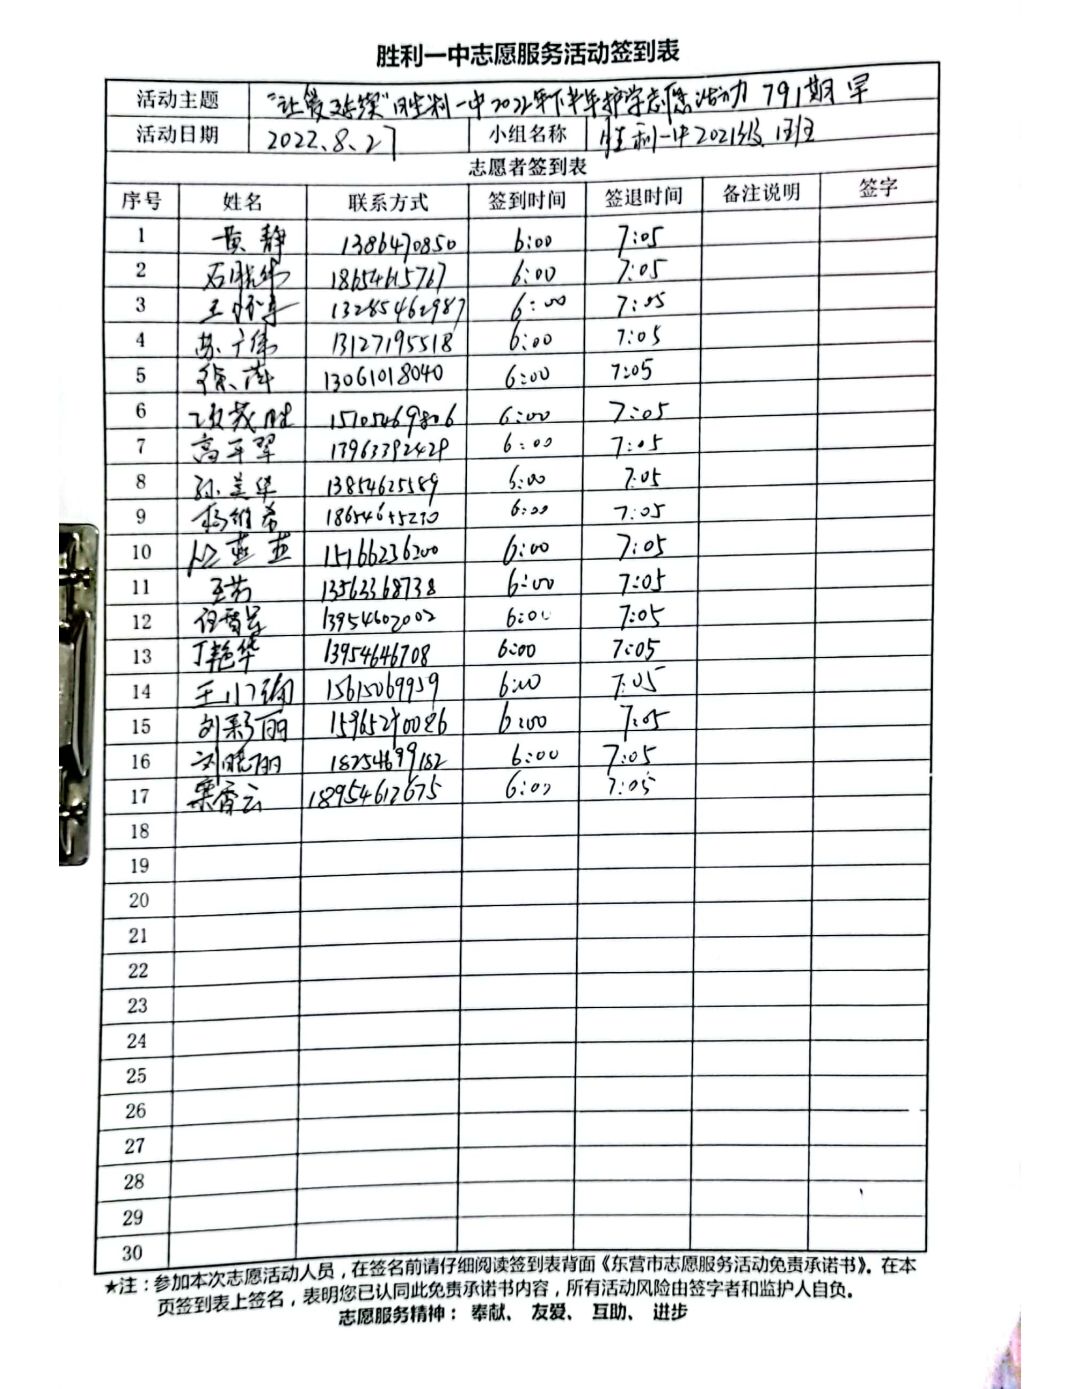 胜利一中志愿服务活动签到表
活动主题 "让爱延续"胜利一中2022年下半年护学志愿活动 791期早
活动日期 2022.8.27 小组名称 胜利一中2021级
志愿者签到表
序号 姓名 联系方式 签到时间 签退时间 备注说明 签字
1 黄静 1386470850 6:00 7:05
2 石晓伟 18654615767 6:00 7:05
3 13285462987 6:00 7:05
4 苏广伟 13127195518 6:00 7:05
5 徐萍 13061018040 6:00 7:05
6 15105469806 6:00 7:05
7 高平翠 13963392429 6:00 7:05
8 孙兰华 13854625589 6:00 7:05
9 杨维希 18654655210 6:00 7:05
10 15166236200 6:00 7:05
11 王芳 13563368738 6:00 7:05
12 13954602002 6:00 7:05
13 丁艳华 13954646708 6:00 7:05
14 王小瑜 15615069959 6:00 7:05
15 刘彩丽 15965290086 6:00 7:05
16 刘晓丽 18254699182 6:00 7:05
17 香云 18954612675 6:00 7:05
18
19
20
21
22
23
24
25
26
27
28
29
30
★注：参加本次志愿活动人员，在签名前请仔细阅读签到表背面《东营市志愿服务活动免责承诺书》。在本
页签到表上签名，表明您已认同此免责承诺书内容，所有活动风险由签字者和监护人自负。
志愿服务精神： 奉献、 友爱、 互助、 进步